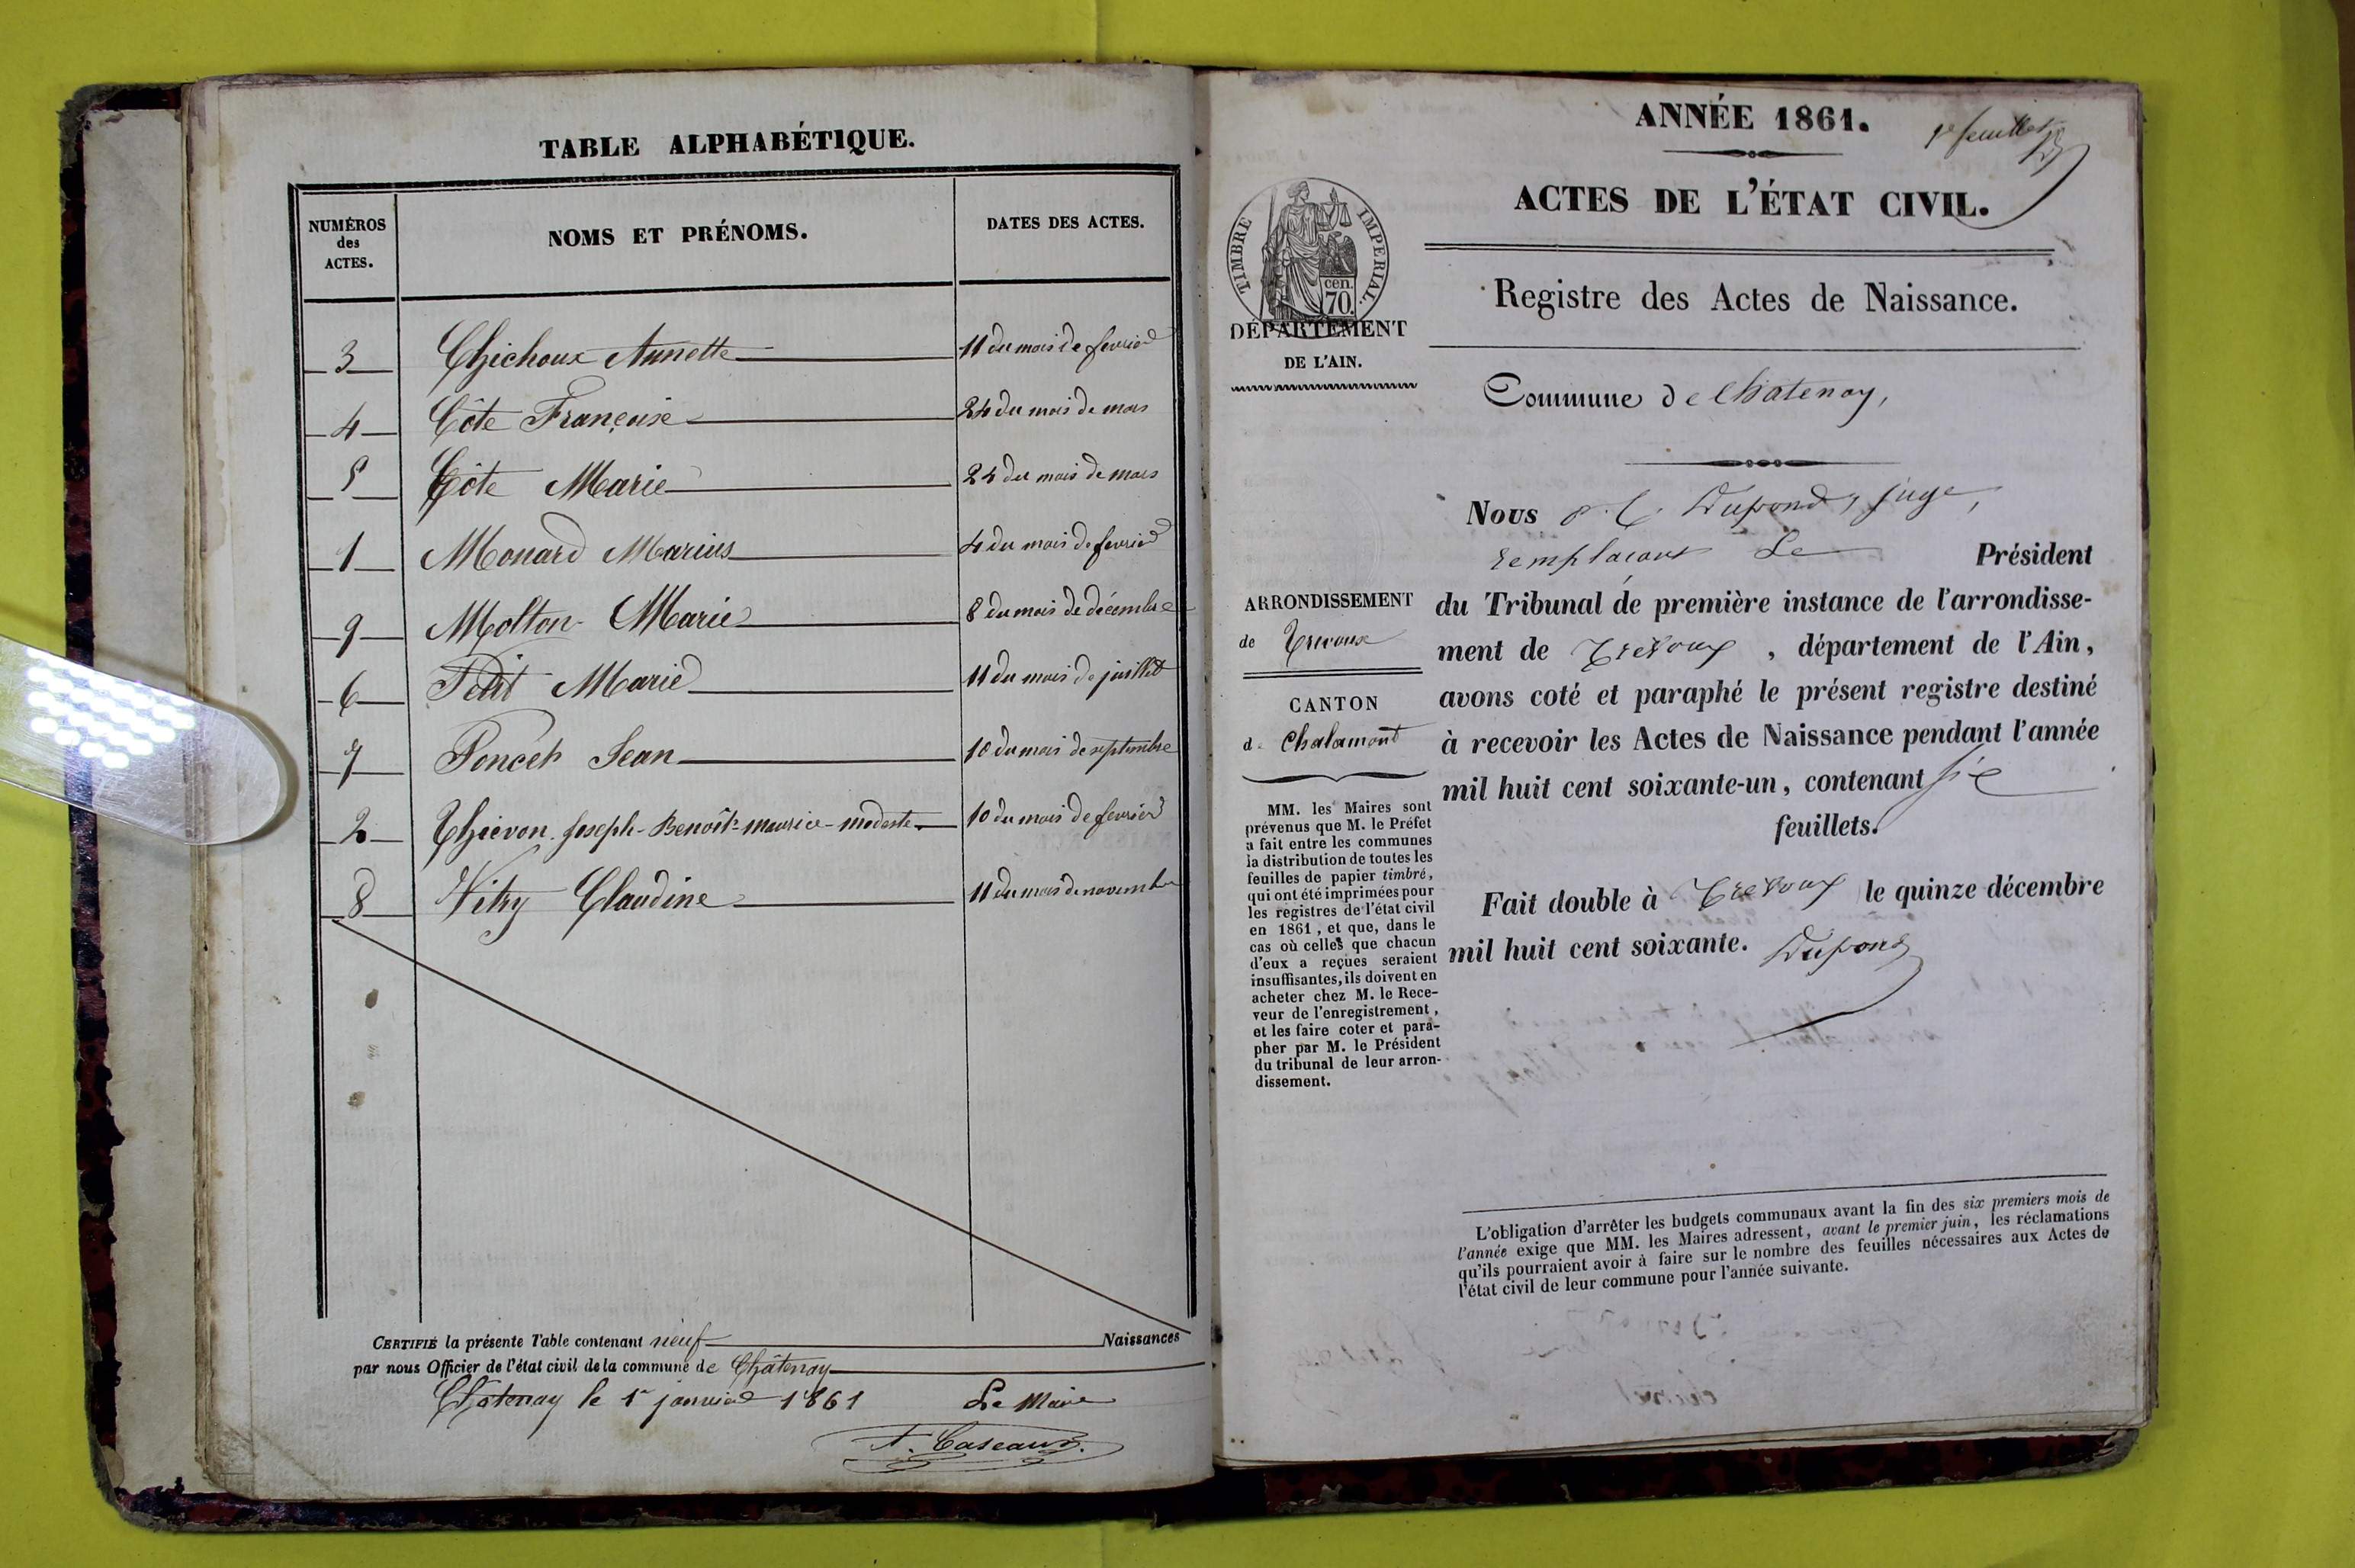 TABLE ALPHABÉTIQUE.
NUMÉROS des ACTES. NOMS ET PRÉNOMS. DATES DES ACTES.
3 Chichoux Annette 11 du mois de fevrier
4 Côte Françoise 24 du mois de mars
5 Côte Marie 24 du mois de mars
1 Monard Marius 4 du mois de fevrier
9 Molton Marie 8 du mois de décembre
6 Petit Marie 11 du mois de juillet
7 Poncet Jean 10 du mois de septembre
2 Thievon Joseph-Benoît-Maurice-modeste 10 du mois de fevrier
8 Vitry Claudine 11 du mois de novembre
CERTIFIÉ la présente Table contenant neuf Naissances
par nous Officier de l'état civil de la commune de Châtenay
Chatenay le 1er janvier 1861 Le Maire
A. Caseaux.
ANNÉE 1861.
1er feuillet
ACTES DE L'ÉTAT CIVIL.
TIMBRE IMPERIAL.
cen. 70.
DÉPARTEMENT
DE L'AIN.
Registre des Actes de Naissance.
Commune de Chatenay,
ARRONDISSEMENT
de Trevoux
CANTON
de Chalamont
MM. les Maires sont
prévenus que M. le Préfet
a fait entre les communes
la distribution de toutes les
feuilles de papier timbré,
qui ont été imprimées pour
les registres de l'état civil
en 1861, et que, dans le
cas où celles que chacun
d'eux a reçues seraient
insuffisantes, ils doivent en
acheter chez M. le Rece-
veur de l'enregistrement,
et les faire coter et para-
pher par M. le Président
du tribunal de leur arron-
dissement.
Nous Dupond, juge,
remplacant Le Président
du Tribunal de première instance de l'arrondisse-
ment de Trevoux, département de l'Ain,
avons coté et paraphé le présent registre destiné
à recevoir les Actes de Naissance pendant l'année
mil huit cent soixante-un, contenant six
feuillets.
Fait double à Trevoux le quinze décembre
mil huit cent soixante. Dupond
L'obligation d'arrêter les budgets communaux avant la fin des six premiers mois de
l'année exige que MM. les Maires adressent, avant le premier juin, les réclamations
qu'ils pourraient avoir à faire sur le nombre des feuilles nécessaires aux Actes de
l'état civil de leur commune pour l'année suivante.